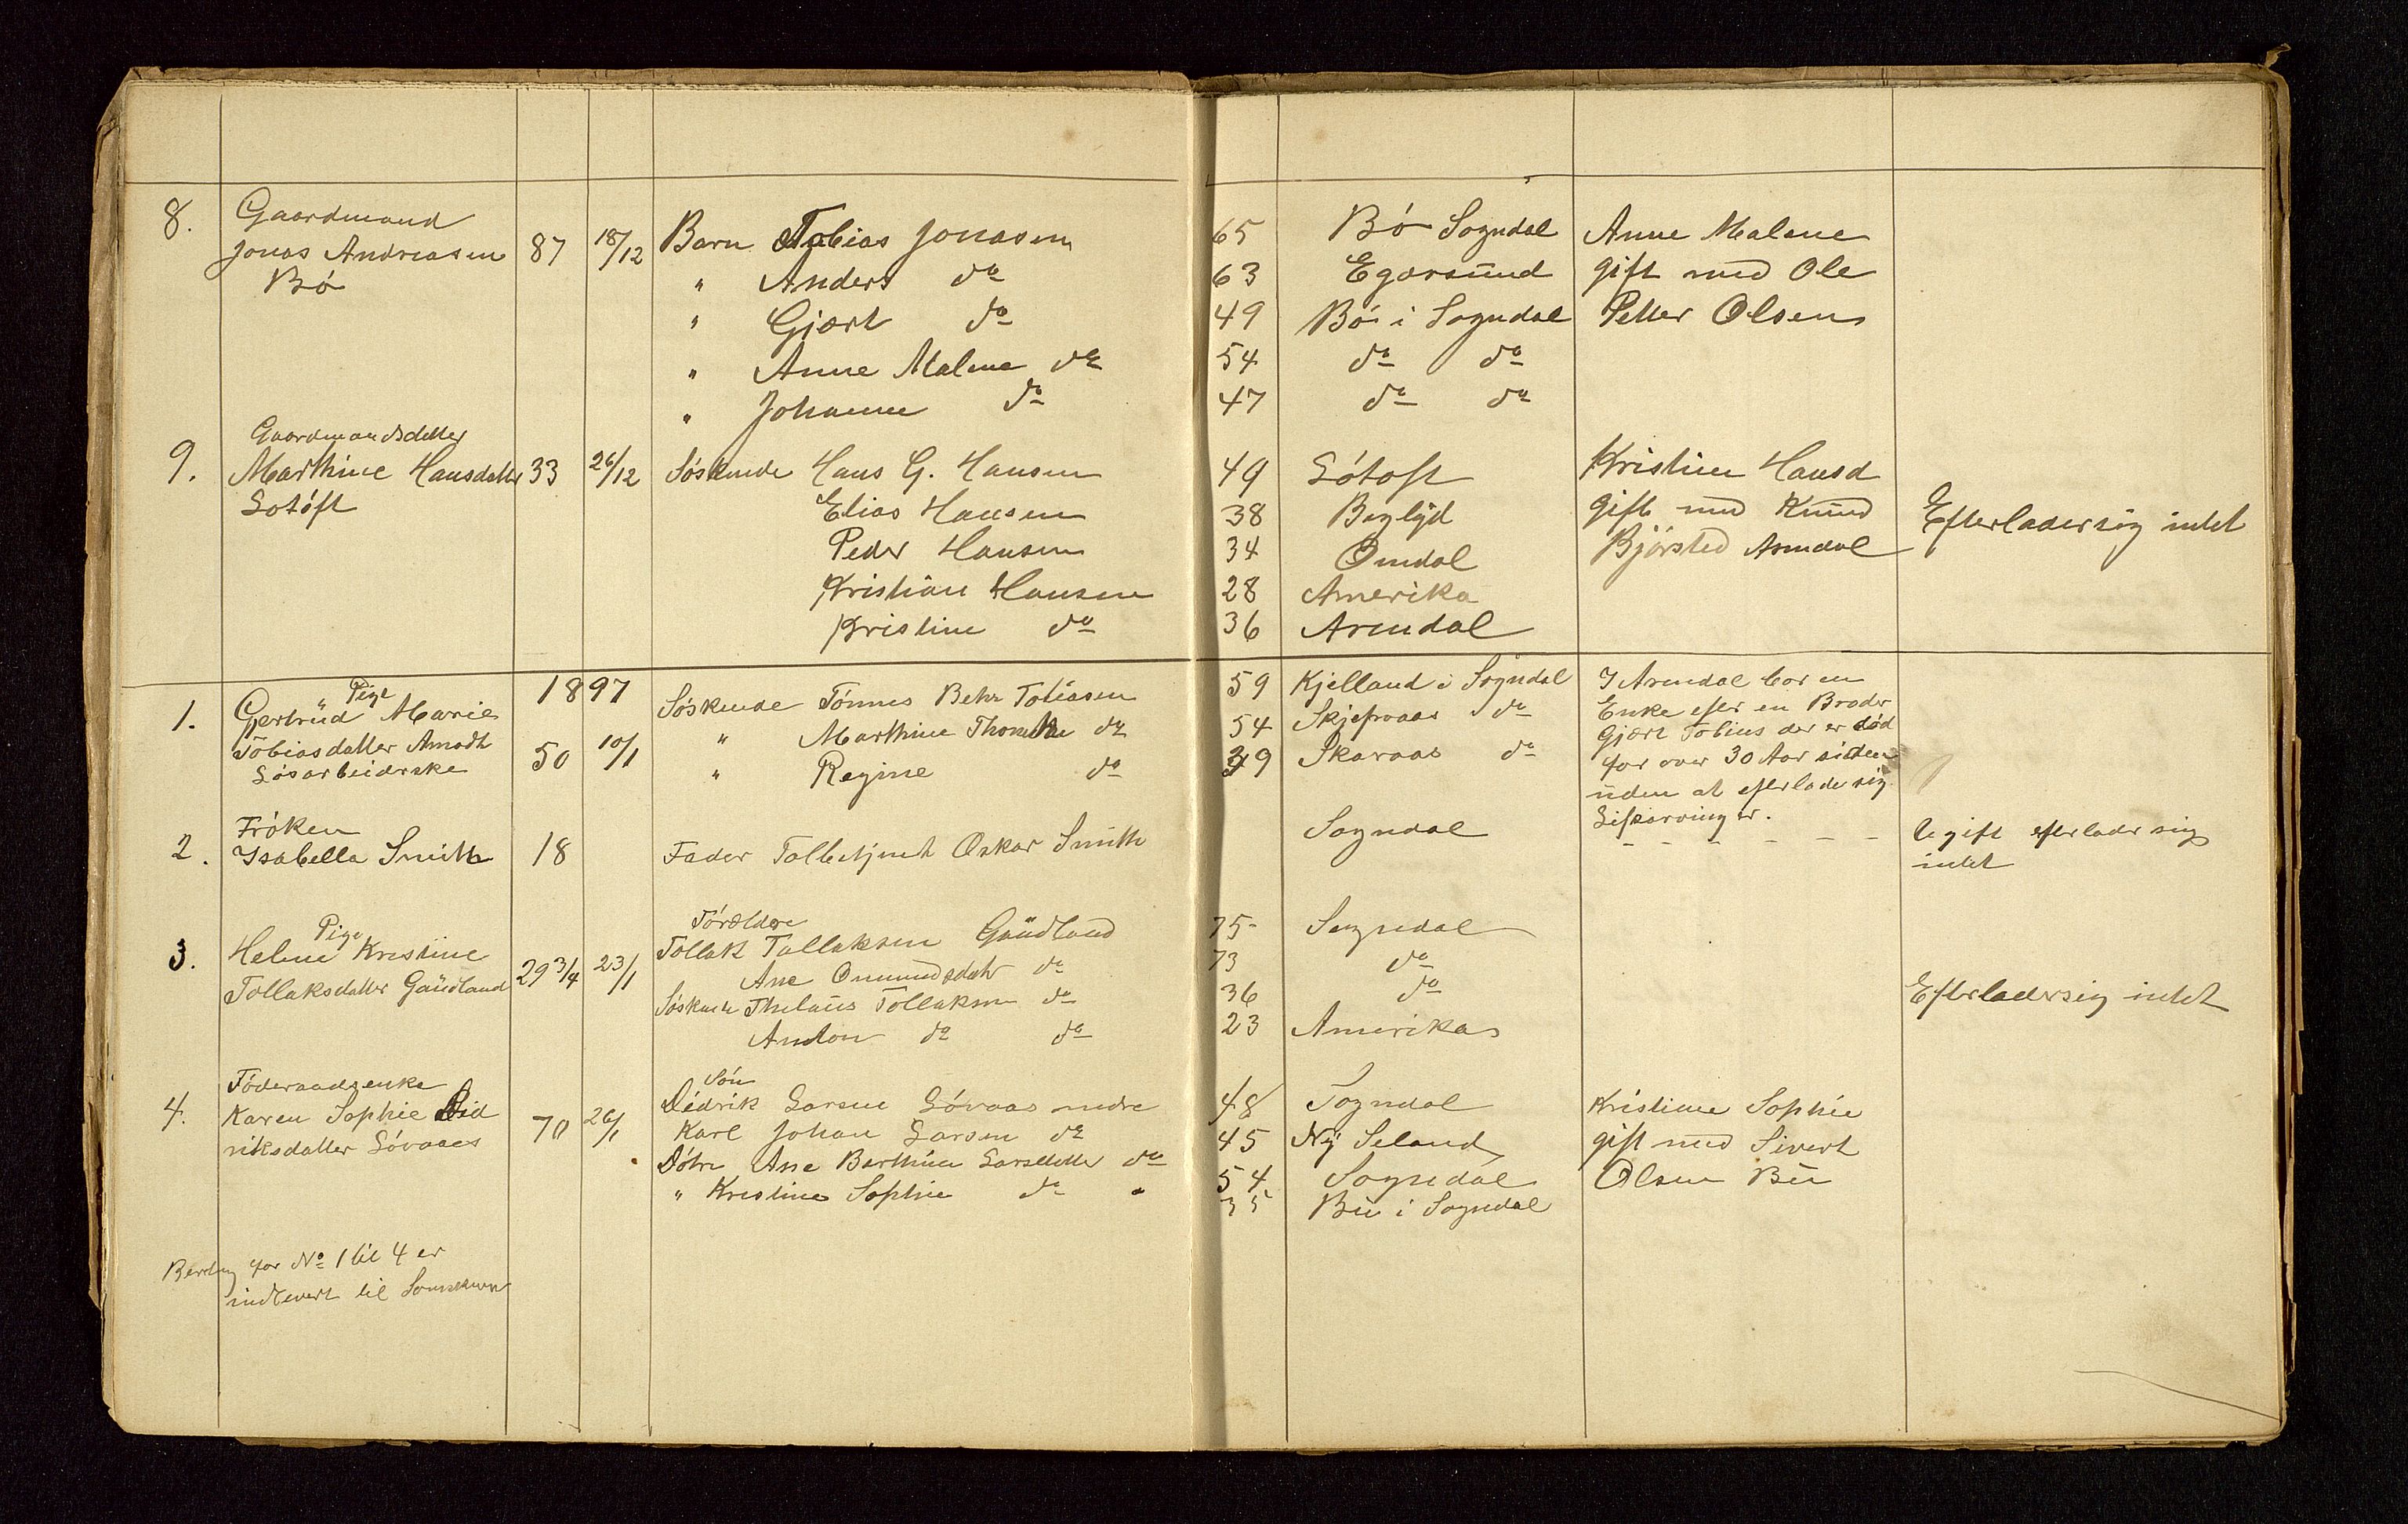 8. Gaardmand
Jonas Andreasen 87 18/12 Barn Tobias Jonasen 65 Bö Sogndal Anne Malene
Bö " Anders do 63 Egersund gift med Ole
" Gjert do 49 Bö i Sogndal Petter Olsen
" Anne Malene do 54 do do
" Johanne do 47 do do
Gaardmandsdatter
9. Marthine Hansdatter 33 26/12 Söskende Hans G. Hansen 49 Lötoft Kristine Hansd
Lotöft Elias Hansen 38 Beglyd gift med Knud Efterlader sig intet
Peder Hansen 34 Omdal Bjorsted Arendal
Kristian Hansen 28 Amerika
Kristine do 36 Arendal
1897
Pige
1. Gertrud Marie Söskende Tönnes Behr Tobiasen 59 Kjelland i Sogndal I Arendal bor en
Tobiasdatter Amodt 50 10/1 " Marthine do 54 do Enke efter en Broder
Lösarbeiderske " Regine do 39 Skaraas do Gjert Tobias der er död
for over 30 Aar siden
uden at efterlade sig
Lifsarvinger.
Fröken
2. Isabella Smith 18 Fader Toldbetjent Oskar Smith Sogndal - - - - - - Ugift efterlader sig
intet
Pige Forældre
3. Helene Kristine Tollak Tollaksen Gaudland 75 Sogndal
Tollaksdatter Gaudland 29 3/4 23/1 Ane Ommundsdatr do 73 do
Söskende Tollaksen do 36 do Efterlader sig intet
Anton do do 23 Amerika
Föderaadsenke Sön
4. Karen Sophie Did Didrik Larsen Lövaas nedre 48 Sogndal Kristine Sophie
riksdatter Lövaas 70 26/1 Karl Johan Larsen do 45 Ny Seland gift med Sivert
Dötre Ane Berthine Larsdatter do 54 Sogndal Olsen Bü
" Kristine Sophie do " 35 Bü i Sogndal
for No 1 til 4 er
indlevert til